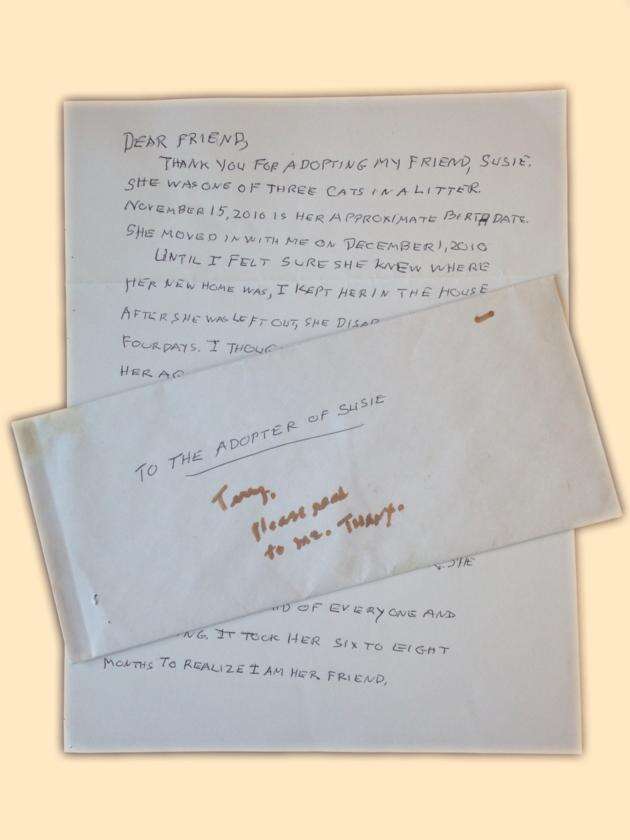 DEAR FRIEND,
THANK YOU FOR ADOPTING MY FRIEND, SUSIE.
SHE WAS ONE OF THREE CATS IN A LITTER.
NOVEMBER 15, 2010 IS HER APPROXIMATE BIRTHDATE.
SHE MOVED IN WITH ME ON DECEMBER 1, 2010
UNTIL I FELT SURE SHE KNEW WHERE
HER NEW HOME WAS, I KEPT HER IN THE HOUSE
AFTER SHE WAS LEFT OUT, SHE
FOUR DAYS. I
HER
TO THE ADOPTER OF SUSIE
please read
to me. Thanx.
SHE
OF EVERYONE AND
IT TOOK HER SIX TO EIGHT
MONTHS TO REALIZE I AM HER FRIEND.